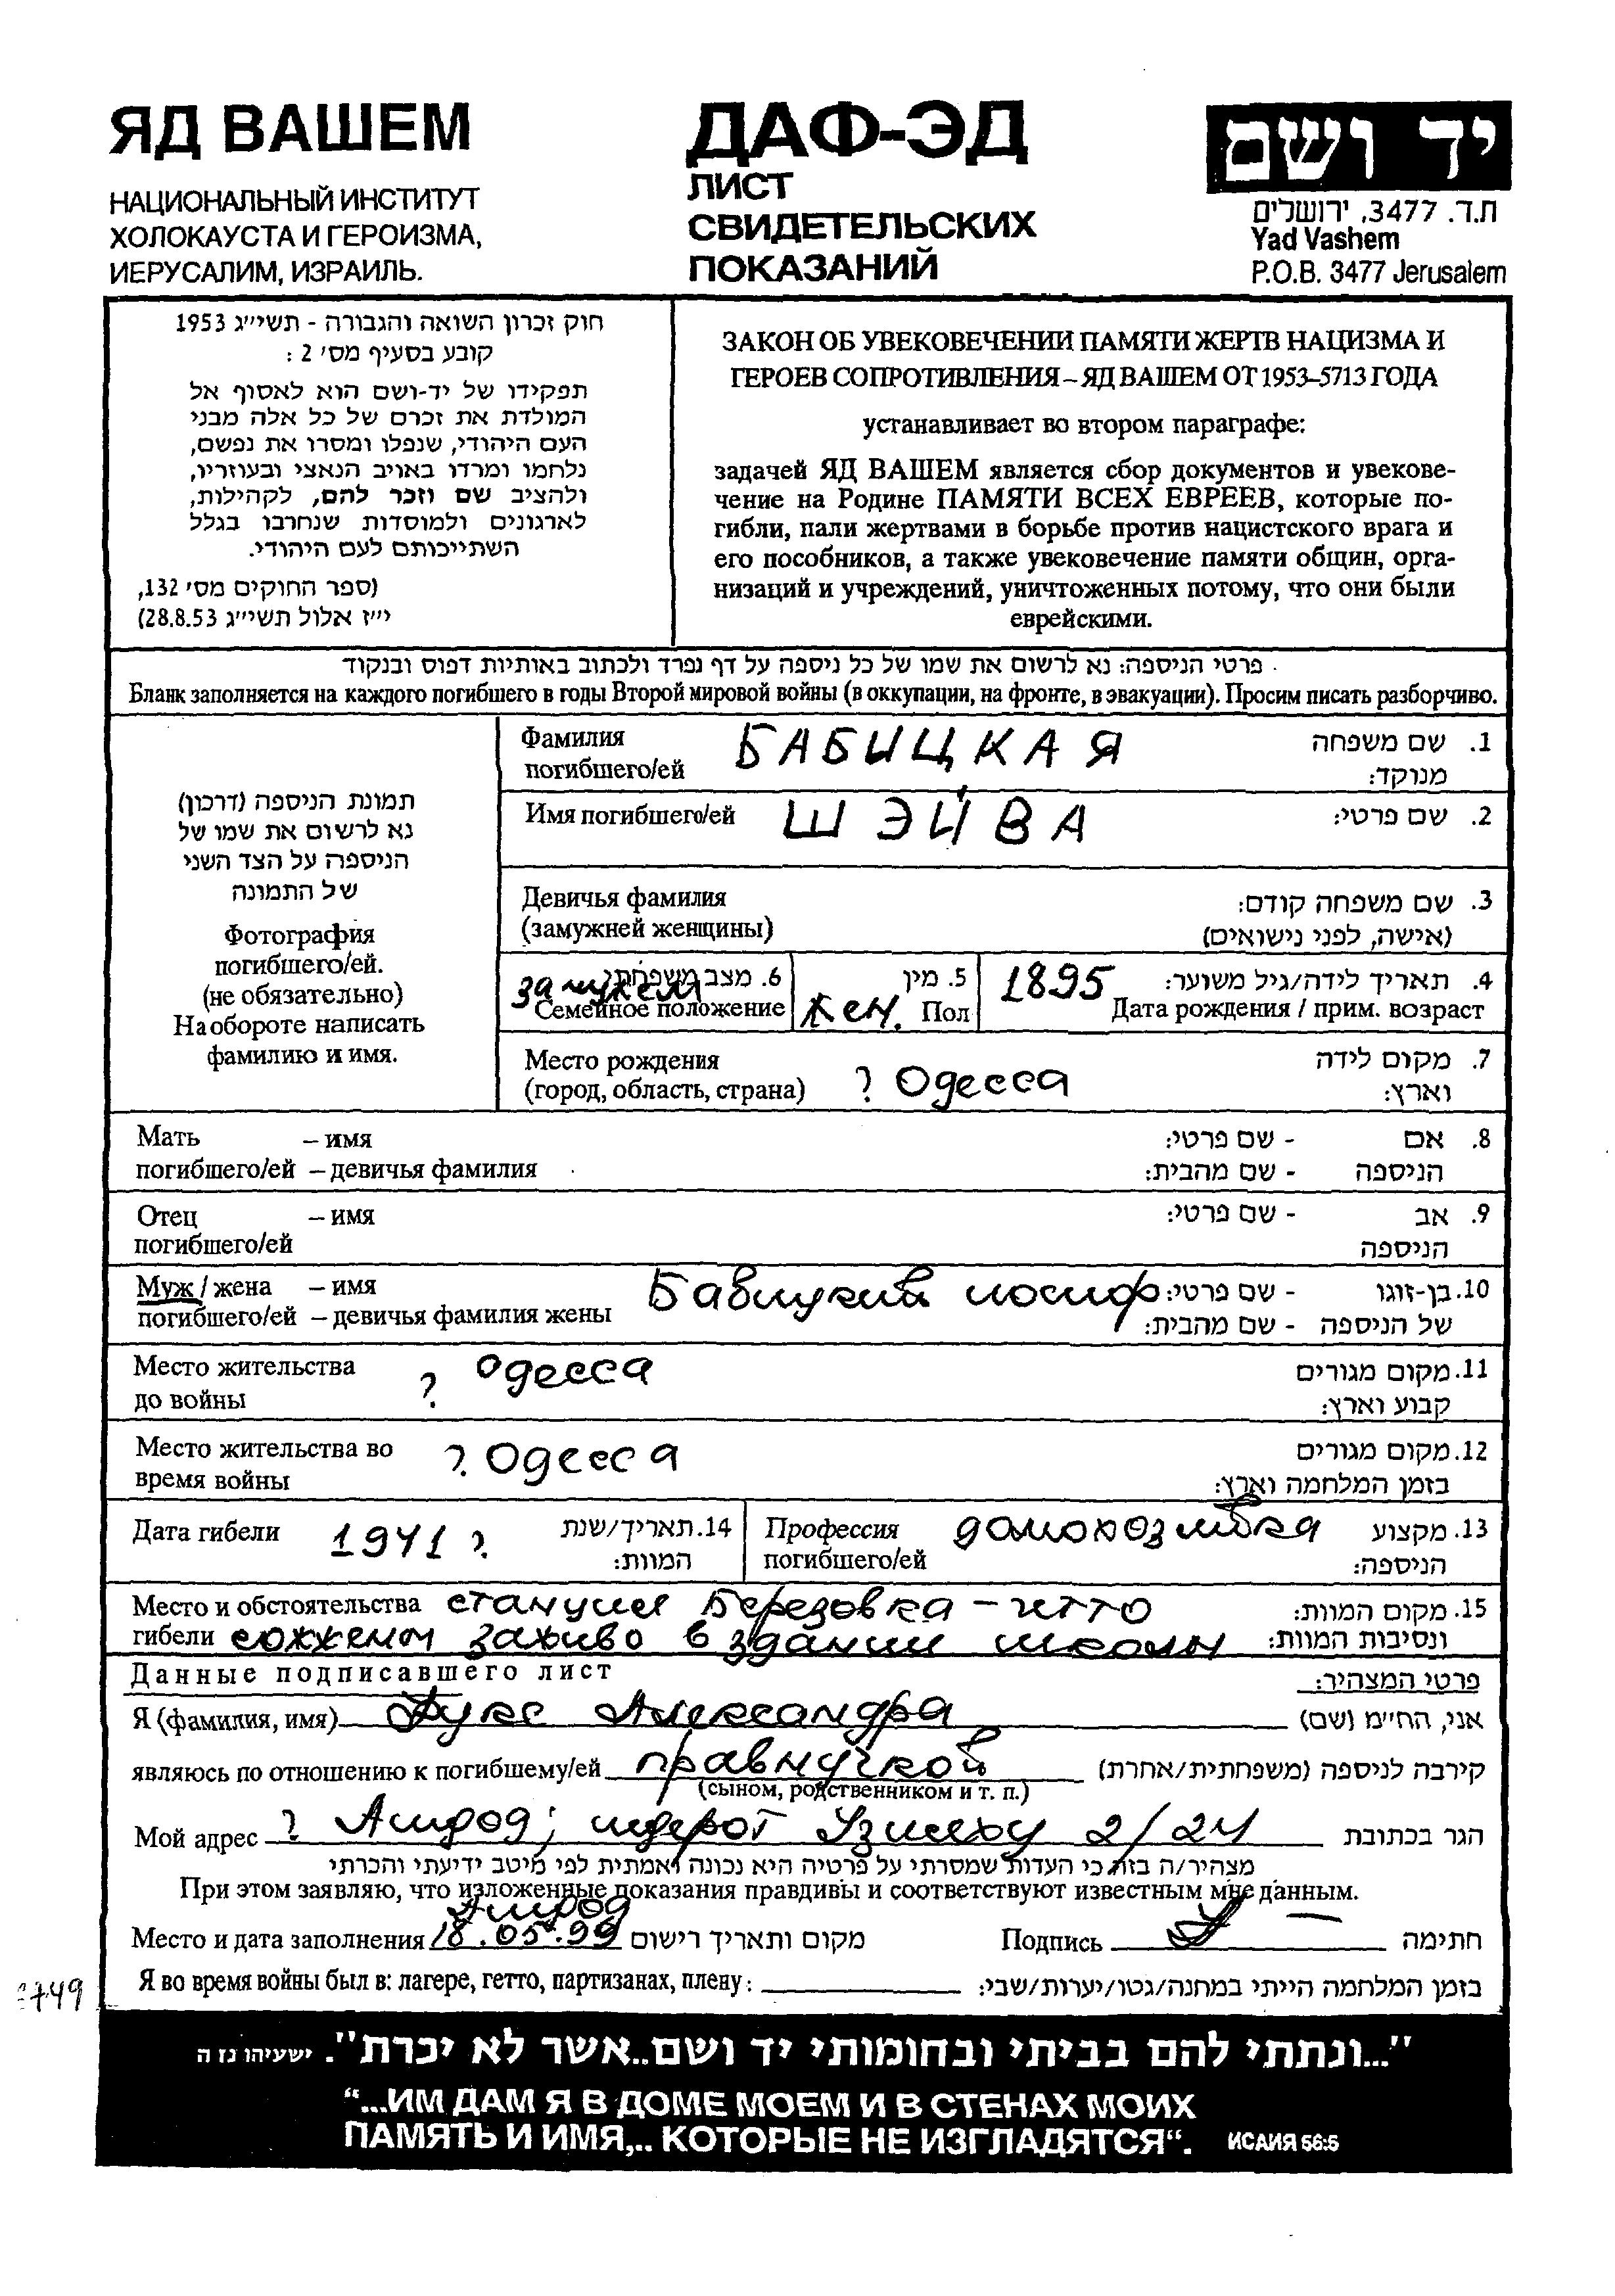 ЯД ВАШЕМ
НАЦИОНАЛЬНЫЙ ИНСТИТУТ
ХОЛОКАУСТА И ГЕРОИЗМА,
ИЕРУСАЛИМ, ИЗРАИЛЬ.
ДАФ-ЭД
ЛИСТ
СВИДЕТЕЛЬСКИХ
ПОКАЗАНИЙ
יד ושם
ת.ד. 3477, ירושלים
Yad Vashem
P.O.B. 3477 Jerusalem
חוק זכרון השואה והגבורה - תשי״ג 1953
קובע בסעיף מס׳ 2 :
תפקידו של יד-ושם הוא לאסוף אל
המולדת את זכרם של כל אלה מבני
העם היהודי, שנפלו ומסרו את נפשם,
נלחמו ומרדו באויב הנאצי ובעוזריו,
ולהציב שם וזכר להם, לקהילות,
לארגונים ולמוסדות שנחרבו בגלל
השתייכותם לעם היהודי.
(ספר החוקים מס׳ 132,
י״ז אלול תשי״ג 28.8.53)
ЗАКОН ОБ УВЕКОВЕЧЕНИИ ПАМЯТИ ЖЕРТВ НАЦИЗМА И
ГЕРОЕВ СОПРОТИВЛЕНИЯ – ЯД ВАШЕМ ОТ 1953–5713 ГОДА
устанавливает во втором параграфе:
задачей ЯД ВАШЕМ является сбор документов и увекове-
чение на Родине ПАМЯТИ ВСЕХ ЕВРЕЕВ, которые по-
гибли, пали жертвами в борьбе против нацистского врага и
его пособников, а также увековечение памяти общин, орга-
низаций и учреждений, уничтоженных потому, что они были
еврейскими.
פרטי הניספה: נא לרשום את שמו של כל ניספה על דף נפרד ולכתוב באותיות דפוס ובנקוד
Бланк заполняется на каждого погибшего в годы Второй мировой войны (в оккупации, на фронте, в эвакуации). Просим писать разборчиво.
תמונת הניספה (דרכון)
נא לרשום את שמו של
הניספה על הצד השני
של התמונה
Фотография
погибшего/ей.
(не обязательно)
На обороте написать
фамилию и имя.
Фамилия БАБИЦКАЯ 1. שם משפחה
погибшего/ей מנוקד:
Имя погибшего/ей ШЭЙВА 2. שם פרטי:
Девичья фамилия 3. שם משפחה קודם:
(замужней женщины) (אישה, לפני נישואים)
замужем 6. מצב משפחתי 5. מין 1895 4. תאריך לידה/גיל משוער:
Семейное положение жен. Пол Дата рождения / прим. возраст
Место рождения 7. מקום לידה
(город, область, страна) г. Одесса וארץ:
Мать – имя - שם פרטי: 8. אם
погибшего/ей – девичья фамилия - שם מהבית: הניספה
Отец – имя - שם פרטי: 9. אב
погибшего/ей הניספה
Муж / жена – имя Бабицкий Иосиф - שם פרטי: 10. בן-זוגו
погибшего/ей – девичья фамилия жены - שם מהבית: של הניספה
Место жительства г. Одесса 11. מקום מגורים
до войны קבוע וארץ:
Место жительства во г. Одесса 12. מקום מגורים
время войны בזמן המלחמה וארץ:
Дата гибели 1941 г. 14. תאריך/שנת Профессия домохозяйка 13. מקצוע
המוות: погибшего/ей הניספה:
Место и обстоятельства станция Березовка – гетто 15. מקום המוות:
гибели сожжены заживо в здании школы ונסיבות המוות:
Данные подписавшего лист פרטי המצהיר:
Я (фамилия, имя) Александра אני, החי״מ (שם)
являюсь по отношению к погибшему/ей правнучкой קירבה לניספה (משפחתית/אחרת)
(сыном, родственником и т. п.)
Мой адрес г. Ашдод, шдерот 2/24 הגר בכתובת
מצהיר/ה בזה כי העדות שמסרתי על פרטיה היא נכונה ואמתית לפי מיטב ידיעתי והכרתי
При этом заявляю, что изложенные показания правдивы и соответствуют известным мне данным.
Ашдод
Место и дата заполнения 18.05.99 מקום ותאריך רישום Подпись חתימה
Я во время войны был в: лагере, гетто, партизанах, плену: בזמן המלחמה הייתי במחנה/גטו/יערות/שבי:
"...ונתתי להם בביתי ובחומותי יד ושם..אשר לא יכרת". ישעיהו נז ה
“...ИМ ДАМ Я В ДОМЕ МОЕМ И В СТЕНАХ МОИХ
ПАМЯТЬ И ИМЯ,.. КОТОРЫЕ НЕ ИЗГЛАДЯТСЯ“. ИСАИЯ 56:5